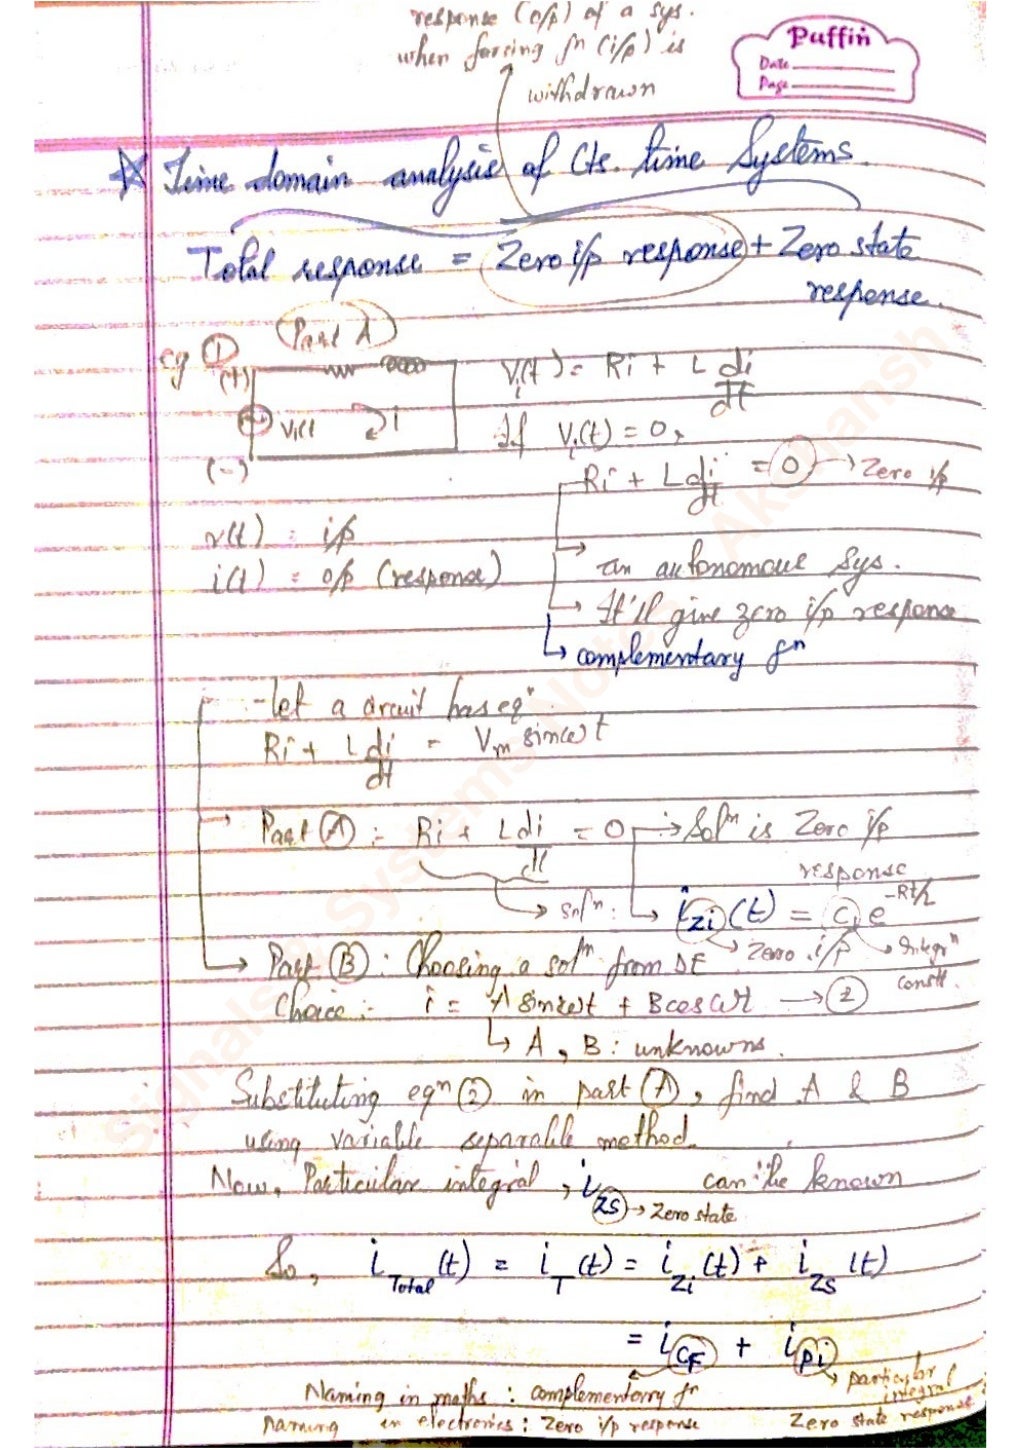 response (o/p) of a sys.
when forcing fⁿ (i/p) is
withdrawn
Puffin
Date
Page
☆ Time domain analysis of Cts. time Systems.
Total response = Zero i/p response + Zero state
response.
eg ① Part A
(+)
Vi(t) i
(-)
Vi(t) = Ri + L di/dt
If Vi(t) = 0,
Ri + L di/dt = 0 → Zero i/p
v(t) = i/p
i(t) = o/p (response)
→ an autonomous sys.
→ It'll give zero i/p response
↳ complementary fⁿ
- let a circuit has eqⁿ
Ri + L di/dt = Vm sinωt
→ Part Ⓐ : Ri + L di/dt = 0 → Solⁿ is Zero i/p
response
→ solⁿ : ↳ izi(t) = c₁e^-Rt/L
→ Zero i/p → Integrⁿ
constt.
→ Part Ⓑ : Choosing a solⁿ from DE
Choice :- i = A sinωt + B cosωt → ②
↳ A, B : unknowns.
Substituting eqⁿ ② in part Ⓐ, find A & B
using variable separable method.
Now, Particular integral, izs can be known
→ Zero state
So, iTotal(t) = iT(t) = izi(t) + izs(t)
= iCF + ipi
→ particular
integral
Naming in maths : complementary fⁿ
Naming in electronics : Zero i/p response Zero state response
Signals & Systems Notes Akshansh